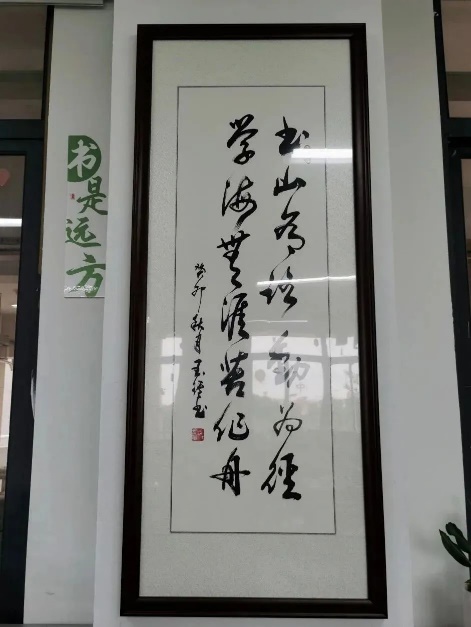 书山有路勤为径
学海無涯苦作舟
癸卯秋月
书是远方